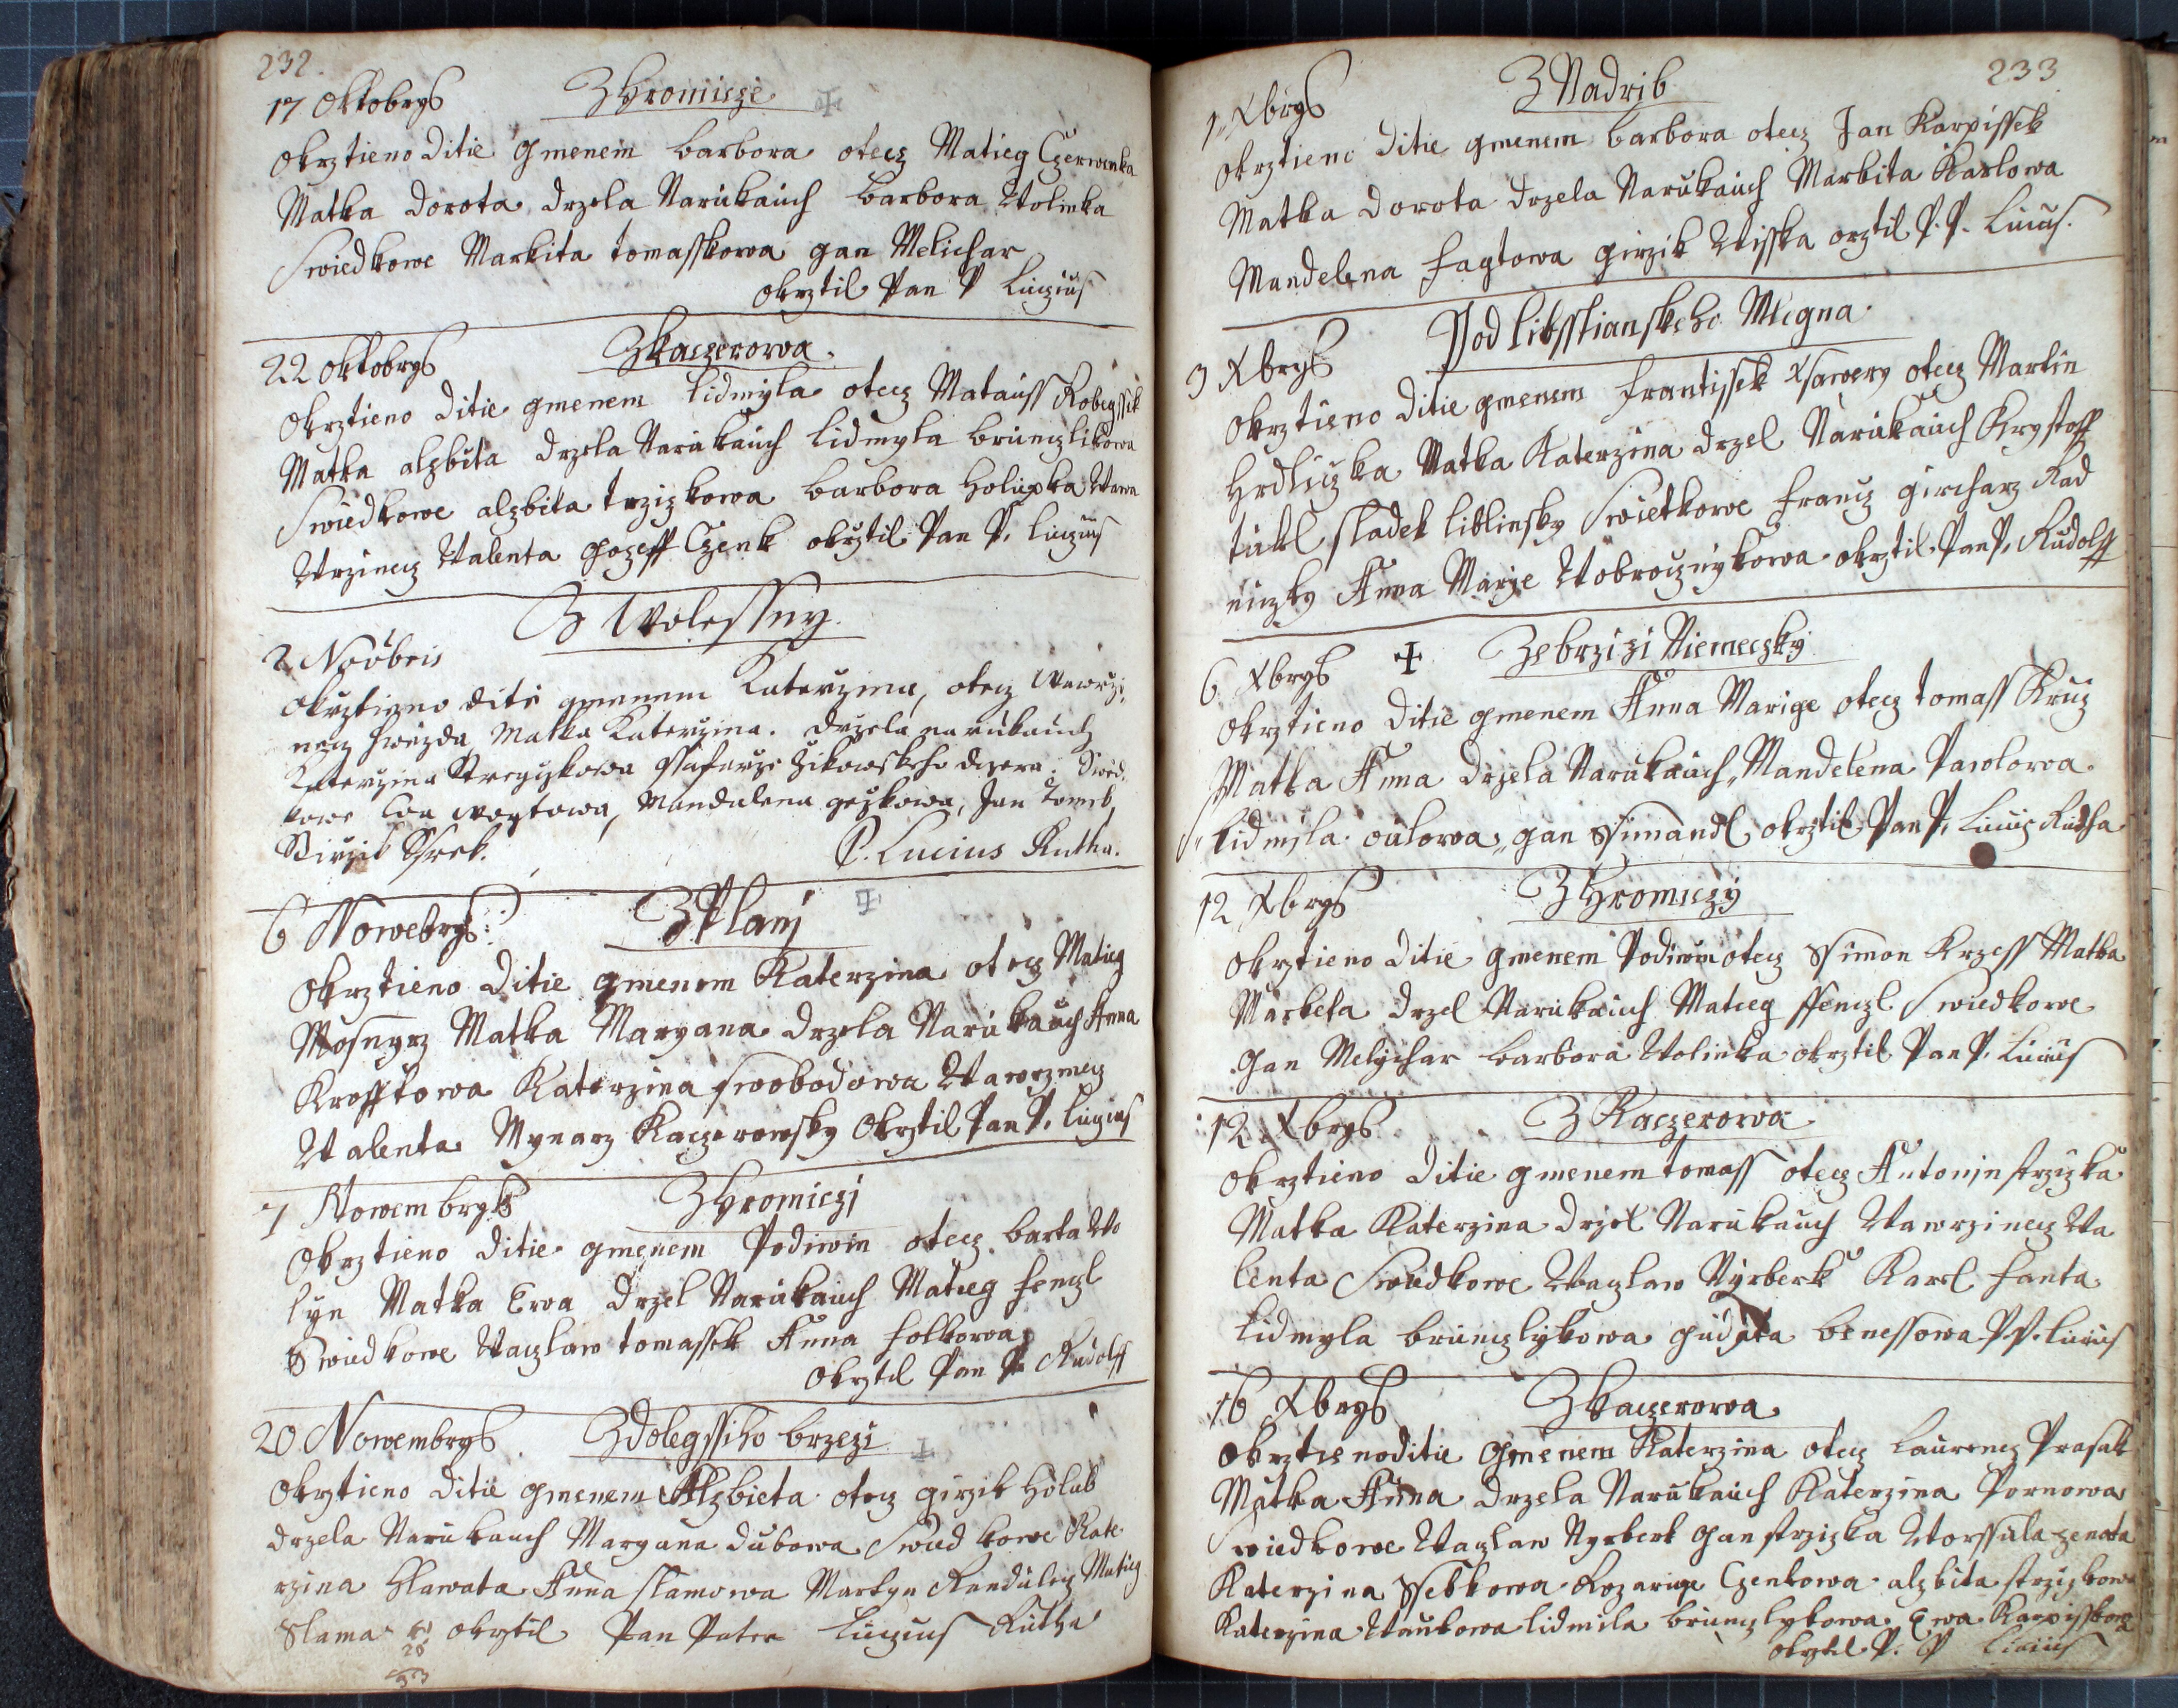 232.
17 Oktobrys Z Hromicze
Okrztieno Ditie Gmenem barbora otecz Matieg Czerwenka
Matka Dorota drzela Narukauch barbora Wolinka
Swiedkowe Markita tomasskowa gan Melichar
okrztil Pan P Luczius
22 Oktobrys Z kaczerowa.
Okrztieno Ditie gmenem lidmyla otecz Matauss Kobegssek
Matka alzbita drzela Narukauch lidmyla brunczlikowa
Swiedkowe alzbita trzizkowa barbora holupka
Wrzinecz Walenta Gozeff Czenk okrztil Pan P. Luczius
Z Wolessny.
2 Novbris
Okrztieno dite gmenem Katerzina, otecz Wawrzi,
necz hwezda Matka Katerzina. drzela na rukauch
Katerzina Stregczkowa Ssafarze Zikowskeho dczera. Swed,
kowe Eva Wogtowa, Mandalena geżkowa, Jan
P. Lucius Rutha.
6 Nowebrys: Z Planj
Okrztieno Ditie gmenem Katerzina otecz Matieg
Wosnyrz Matka Maryana drzela Narukauch Anna
Krofftowa Katerzina Swobodowa Wawrzinecz
Walenta Mynarz Kaczerowsky Okrztil Pan P. Luczius
7 Nowembrys Z Hromiczj
Okrztieno Ditie gmenem Podiwin otecz barta Wo
lyn Matka Ewa Drzel Narukauch Matieg fenczl
Swiedkowe Waczlaw tomassek Anna folkowa
Okrztil Pan P. Rudolff
20 Nowembrys. Z dolegssiho brzezi
Okrztieno Ditie gmenem Alzbieta otecz girzik Holub
drzela Narukauch Maryana dubowa Swiedkowe Kate
rzina Hlawata Anna slamowa Martyn Randulecz Matieg
Slama okrztil Pan Pater Luczius Rutha
233
1 Xbrys Z Nadrib
Okrztieno Ditie gmenem barbora otecz Jan Karpissek
Matka Dorota drzela Narukauch Markita Karlowa
Mandelena fagtowa girzik Wisska orztil P. P. Lucius.
3 Xbrys Pod libsstianskeho Mlegna.
Okrztieno Ditie gmenem frantissek Xsawery otecz Martin
Hrdliczka Matka Katerzina drzel Narukauch Krystoff
tukl sladek liblinsky Swietkowe francz gircharz Rad
niczky Anna Marye Wobrocznykowa okrztil Pan P. Rudolff
6 Xbrys Zebrzizi Niemeczky
Okrztieno Ditie gmenem Anna Marige otecz tomass Kruz
Matka Anna drzela Narukauch Mandelena Pawlowa
lidmila oulowa gan Ssimandl okrztil Pan P. Lucius Rudha
12 Xbrys Z Hromiczy
Okrztieno Ditie gmenem Podiwin otecz Ssimon Krzess Matka
Marketa drzel Narukauch Matieg ffenczl Swiedkowe
Gan Melychar barbora Wolinka okrztil Pan P. Lucius
12 Xbrys Z Kaczerowa
Okrztieno Ditie gmenem tomass otecz Antonin strzizka
Matka Katerzina drzel Narukauch Wawrzinecz Wa
lenta Swiedkowe Waczlaw Nyrberk Karel fanta
lidmyla brunczlykowa gudyta benessowa P. P. Lucius
16 Xbrys Z kaczerowa
Okrztienoditie Gmenem Katerzina otecz Laurencz Prasak
Matka Anna drzela Narukauch Katerzina Pornowa
Swiedkowe Waczlaw Nyrberk Gan strzizka Worssula zenata
Katerzina Ssebkowa Rozarige Czenkowa alzbita strzizkowa
Katerzina Waukowa lidmila brunczlykowa Ewa Karpisskowa
okrztil P. P Lucius